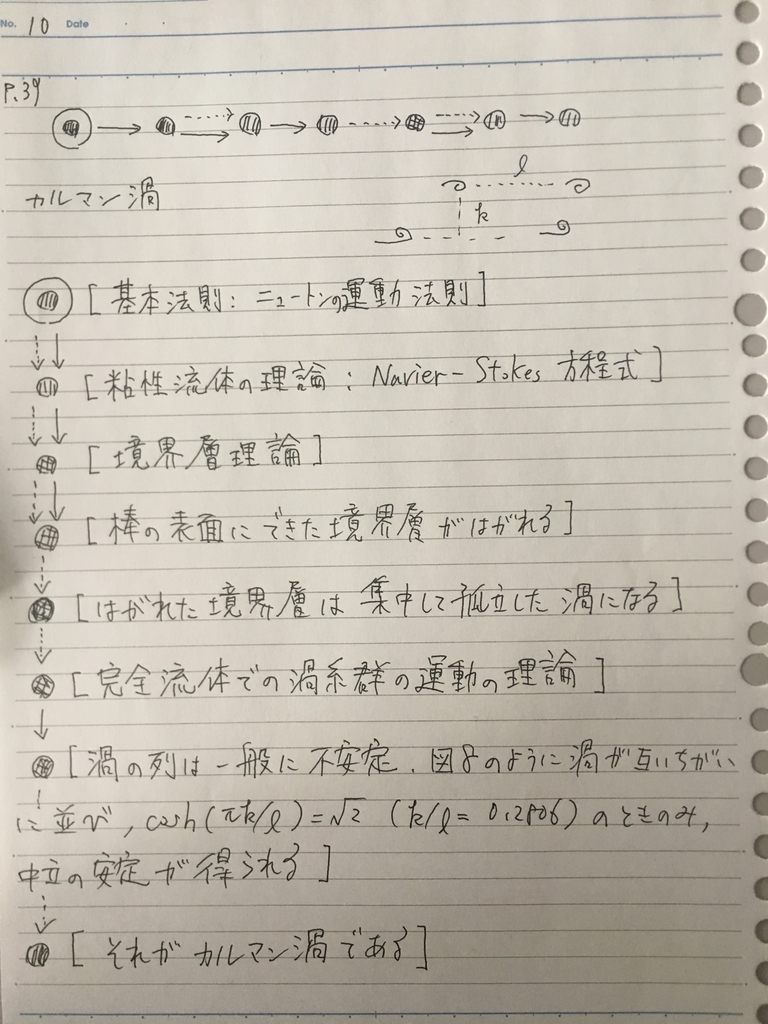 No. 10 Date
P.39
カルマン渦
l
k
[基本法則: ニュートンの運動法則]
[粘性流体の理論: Navier-Stokes 方程式]
[境界層理論]
[棒の表面にできた境界層がはがれる]
[はがれた境界層は集中して孤立した渦になる]
[完全流体での渦糸群の運動の理論]
[渦の列は一般に不安定. 図8のように渦が互いちがい
に並び, cosh(πk/l)=√2 (k/l= 0.2806)のときのみ,
中立の安定が得られる]
[それがカルマン渦である]